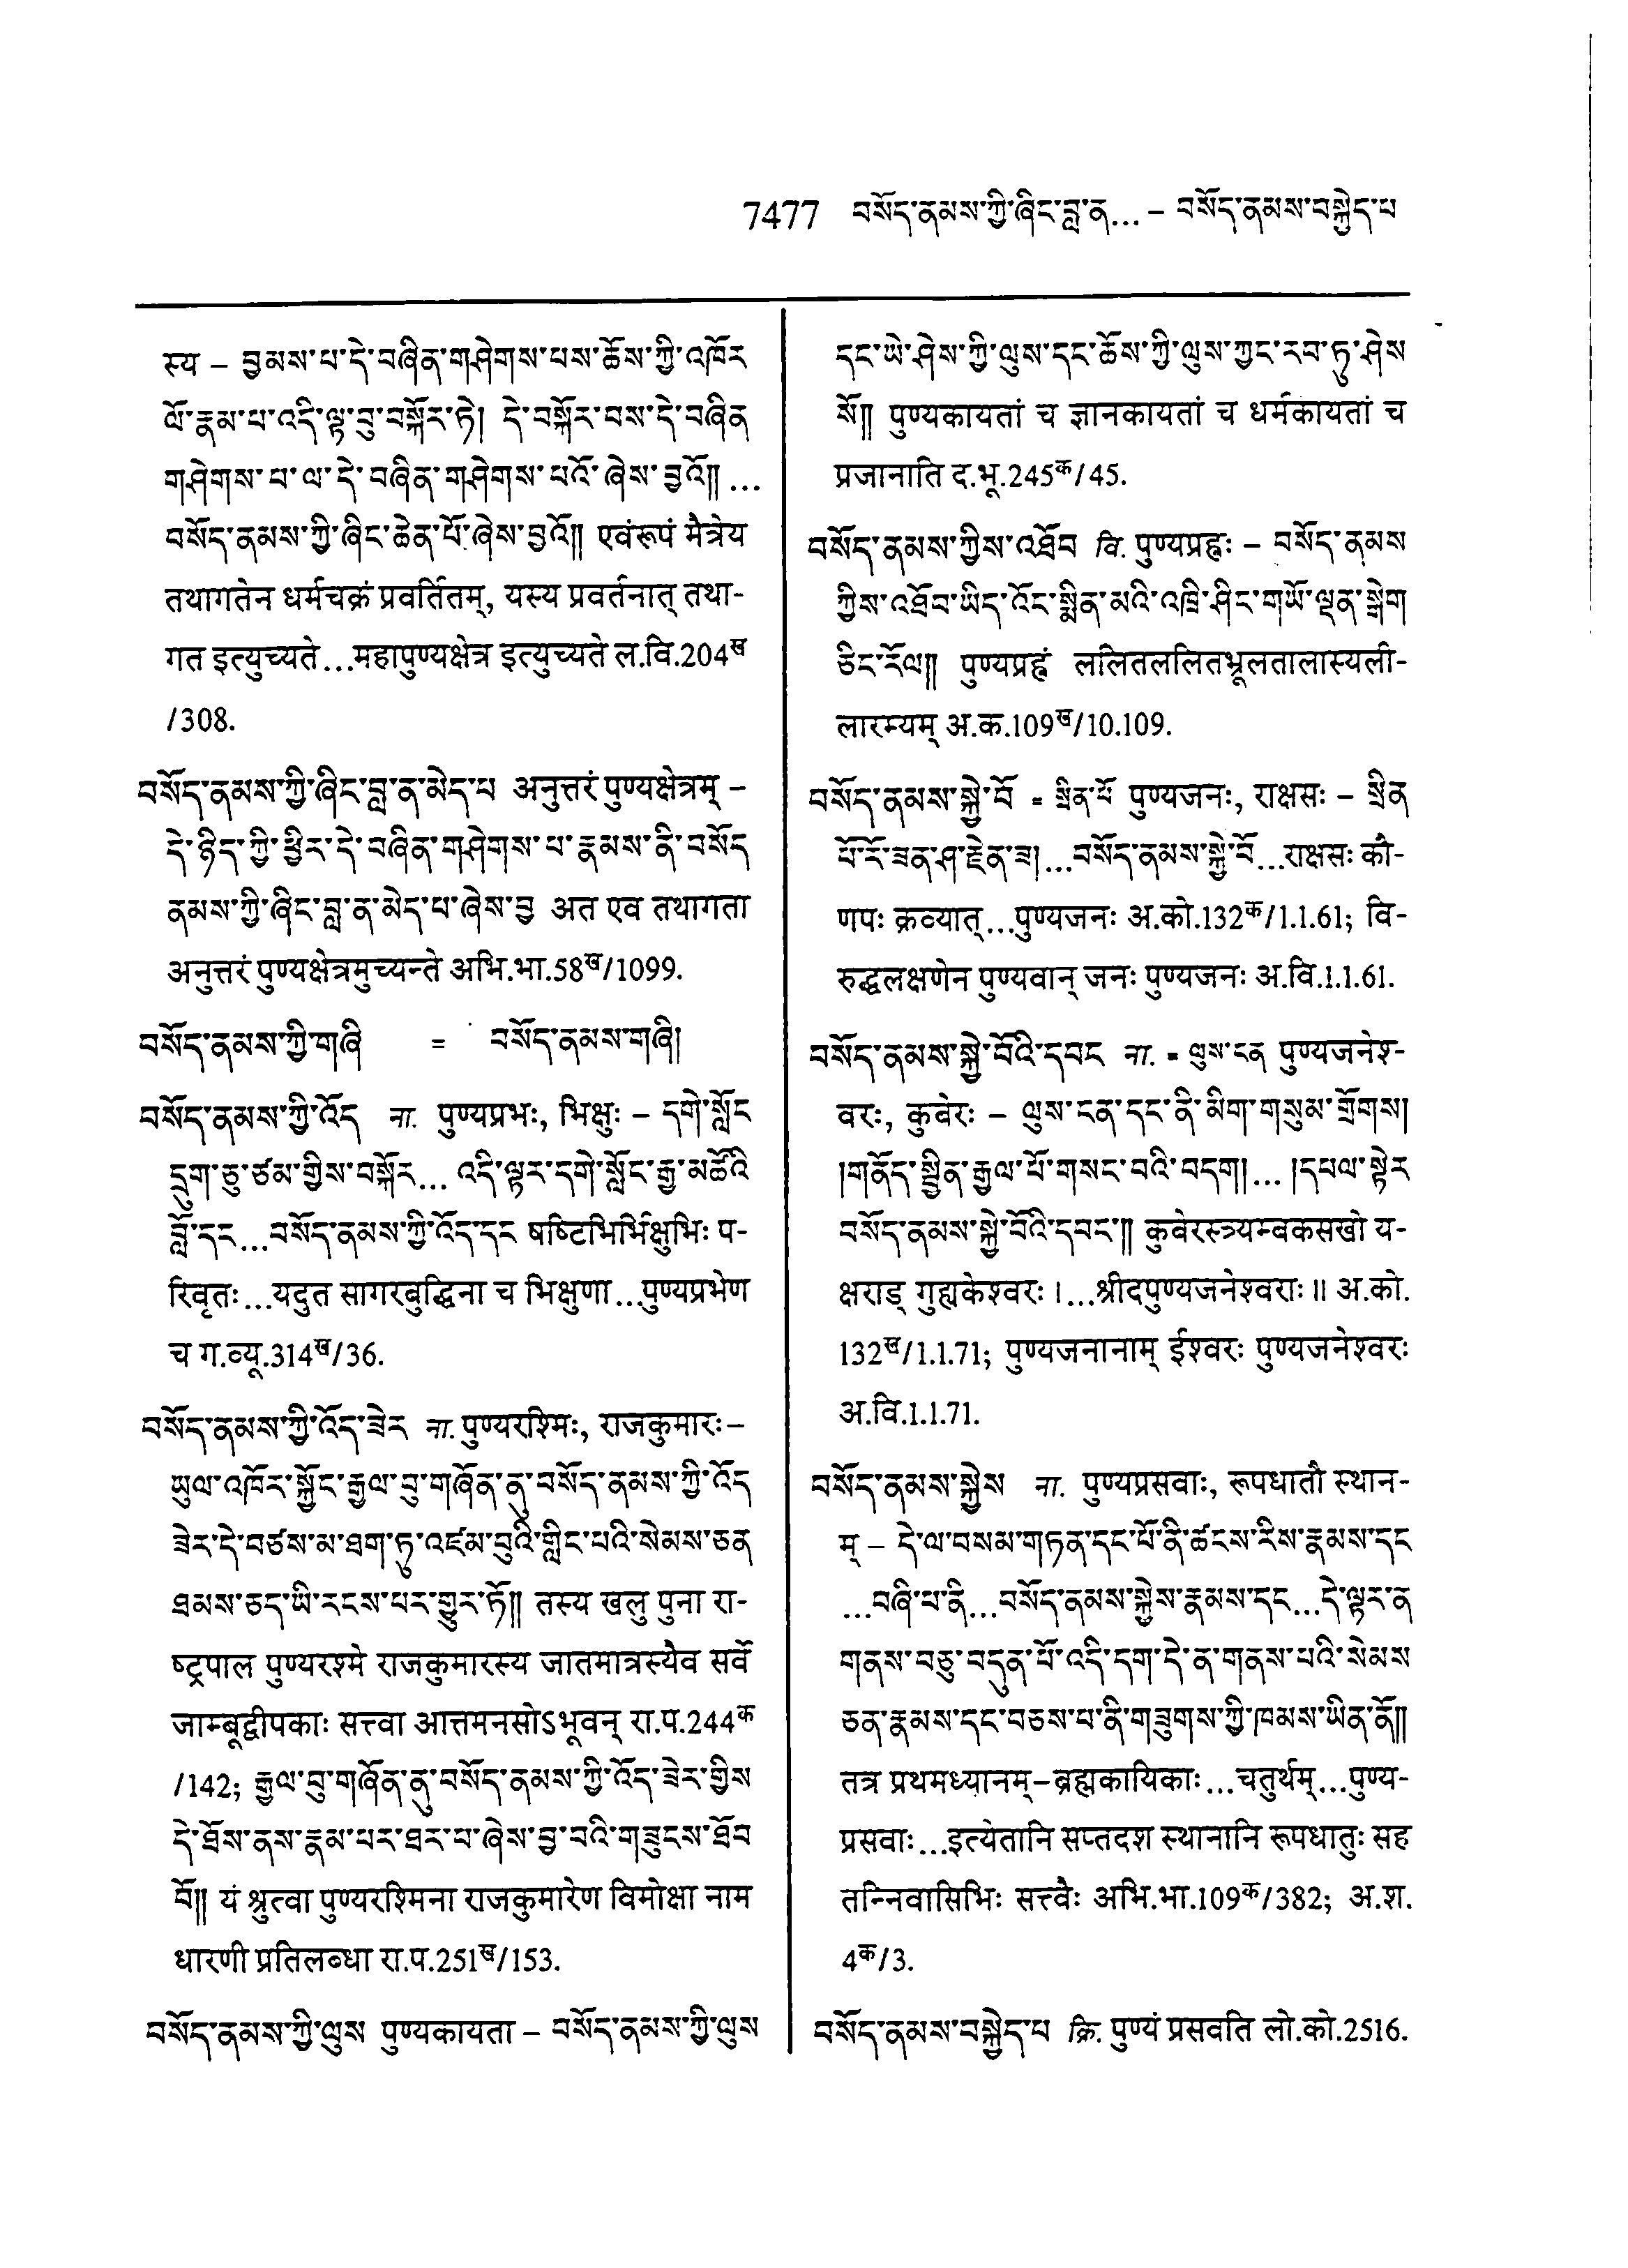 7477 བསོད་ནམས་ཀྱི་ཞིང་བླ་ན… – བསོད་ནམས་བསྐྱེད་པ
स्य – བྱམས་པ་དེ་བཞིན་གཤེགས་པས་ཆོས་ཀྱི་འཁོར
ལོ་རྣམ་པ་འདི་ལྟ་བུ་བསྐོར་ཏེ། དེ་བསྐོར་བས་དེ་བཞིན
གཤེགས་པ་ལ་དེ་བཞིན་གཤེགས་པའོ་ཞེས་བྱའོ།། …
བསོད་ནམས་ཀྱི་ཞིང་ཆེན་པོ་ཞེས་བྱའོ།། एवंरूपं मैत्रेय
तथागतेन धर्मचक्रं प्रवर्तितम्, यस्य प्रवर्तनात् तथा-
गत इत्युच्यते…महापुण्यक्षेत्र इत्युच्यते ल.वि.204ख
/308.
བསོད་ནམས་ཀྱི་ཞིང་བླ་ན་མེད་པ अनुत्तरं पुण्यक्षेत्रम् –
དེ་ཉིད་ཀྱི་ཕྱིར་དེ་བཞིན་གཤེགས་པ་རྣམས་ནི་བསོད
ནམས་ཀྱི་ཞིང་བླ་ན་མེད་པ་ཞེས་བྱ अत एव तथागता
अनुत्तरं पुण्यक्षेत्रमुच्यन्ते अभि.भा.58ख/1099.
བསོད་ནམས་ཀྱི་གཞི = བསོད་ནམས་གཞི།
བསོད་ནམས་ཀྱི་འོད ना. पुण्यप्रभः, भिक्षुः – དགེ་སློང
དྲུག་ཅུ་ཙམ་གྱིས་བསྐོར… འདི་ལྟར་དགེ་སློང་རྒྱ་མཚོའི
བློ་དང…བསོད་ནམས་ཀྱི་འོད་དང षष्टिभिर्भिक्षुभिः प-
रिवृतः…यदुत सागरबुद्धिना च भिक्षुणा…पुण्यप्रभेण
च ग.व्यू.314ख/36.
བསོད་ནམས་ཀྱི་འོད་ཟེར ना. पुण्यरश्मिः, राजकुमारः–
ཡུལ་འཁོར་སྐྱོང་རྒྱལ་བུ་གཞོན་ནུ་བསོད་ནམས་ཀྱི་འོད
ཟེར་དེ་བཙས་མ་ཐག་ཏུ་འཛམ་བུའི་གླིང་པའི་སེམས་ཅན
ཐམས་ཅད་ཡི་རངས་པར་གྱུར་ཏོ།། तस्य खलु पुना रा-
ष्ट्रपाल पुण्यरश्मे राजकुमारस्य जातमात्रस्यैव सर्वे
जाम्बूद्वीपकाः सत्त्वा आत्तमनसोऽभूवन् रा.प.244क
/142; རྒྱལ་བུ་གཞོན་ནུ་བསོད་ནམས་ཀྱི་འོད་ཟེར་གྱིས
དེ་ཐོས་ནས་རྣམ་པར་ཐར་པ་ཞེས་བྱ་བའི་གཟུངས་ཐོབ
བོ།། यं श्रुत्वा पुण्यरश्मिना राजकुमारेण विमोक्षा नाम
धारणी प्रतिलब्धा रा.प.251ख/153.
བསོད་ནམས་ཀྱི་ལུས पुण्यकायता – བསོད་ནམས་ཀྱི་ལུས
དང་ཡེ་ཤེས་ཀྱི་ལུས་དང་ཆོས་ཀྱི་ལུས་ཀྱང་རབ་ཏུ་ཤེས
སོ།། पुण्यकायतां च ज्ञानकायतां च धर्मकायतां च
प्रजानाति द.भू.245क/45.
བསོད་ནམས་ཀྱིས་འཐོབ वि. पुण्यप्रह्वः – བསོད་ནམས
ཀྱིས་འཐོབ་ཡིད་འོང་སྨིན་མའི་འཁྲི་ཤིང་གཡོ་ལྡན་སྒེག
ཅིང་རོལ།། पुण्यप्रह्वं ललितललितभ्रूलतालास्यली-
लारम्यम् अ.क.109ख/10.109.
བསོད་ནམས་སྐྱེ་བོ = སྲིན་པོ पुण्यजनः, राक्षसः – སྲིན
པོ་རོ་ཟན་ཤ་རྗེན་ཟ།…བསོད་ནམས་སྐྱེ་བོ…राक्षसः कौ-
णपः क्रव्यात्…पुण्यजनः अ.को.132क/1.1.61; वि-
रुद्धलक्षणेन पुण्यवान् जनः पुण्यजनः अ.वि.1.1.61.
བསོད་ནམས་སྐྱེ་བོའི་དབང ना. = ལུས་ངན पुण्यजनेश्-
वरः, कुबेरः – ལུས་ངན་དང་ནི་མིག་གསུམ་གྲོགས།
།གནོད་སྦྱིན་རྒྱལ་པོ་གསང་བའི་བདག།… །དཔལ་སྟེར
བསོད་ནམས་སྐྱེ་བོའི་དབང་།། कुबेरस्त्र्यम्बकसखो य-
क्षराड् गुह्यकेश्वरः।…श्रीदपुण्यजनेश्वराः॥ अ.को.
132ख/1.1.71; पुण्यजनानाम् ईश्वरः पुण्यजनेश्वरः
अ.वि.1.1.71.
བསོད་ནམས་སྐྱེས ना. पुण्यप्रसवाः, रूपधातौ स्थान-
म् – དེ་ལ་བསམ་གཏན་དང་པོ་ནི་ཚངས་རིས་རྣམས་དང
…བཞི་པ་ནི…བསོད་ནམས་སྐྱེས་རྣམས་དང…དེ་ལྟར་ན
གནས་བཅུ་བདུན་པོ་འདི་དག་དེ་ན་གནས་པའི་སེམས
ཅན་རྣམས་དང་བཅས་པ་ནི་གཟུགས་ཀྱི་ཁམས་ཡིན་ནོ།།
तत्र प्रथमध्यानम्–ब्रह्मकायिकाः…चतुर्थम्…पुण्य-
प्रसवाः…इत्येतानि सप्तदश स्थानानि रूपधातुः सह
तन्निवासिभिः सत्त्वैः अभि.भा.109क/382; अ.श.
4क/3.
བསོད་ནམས་བསྐྱེད་པ क्रि. पुण्यं प्रसवति लो.को.2516.